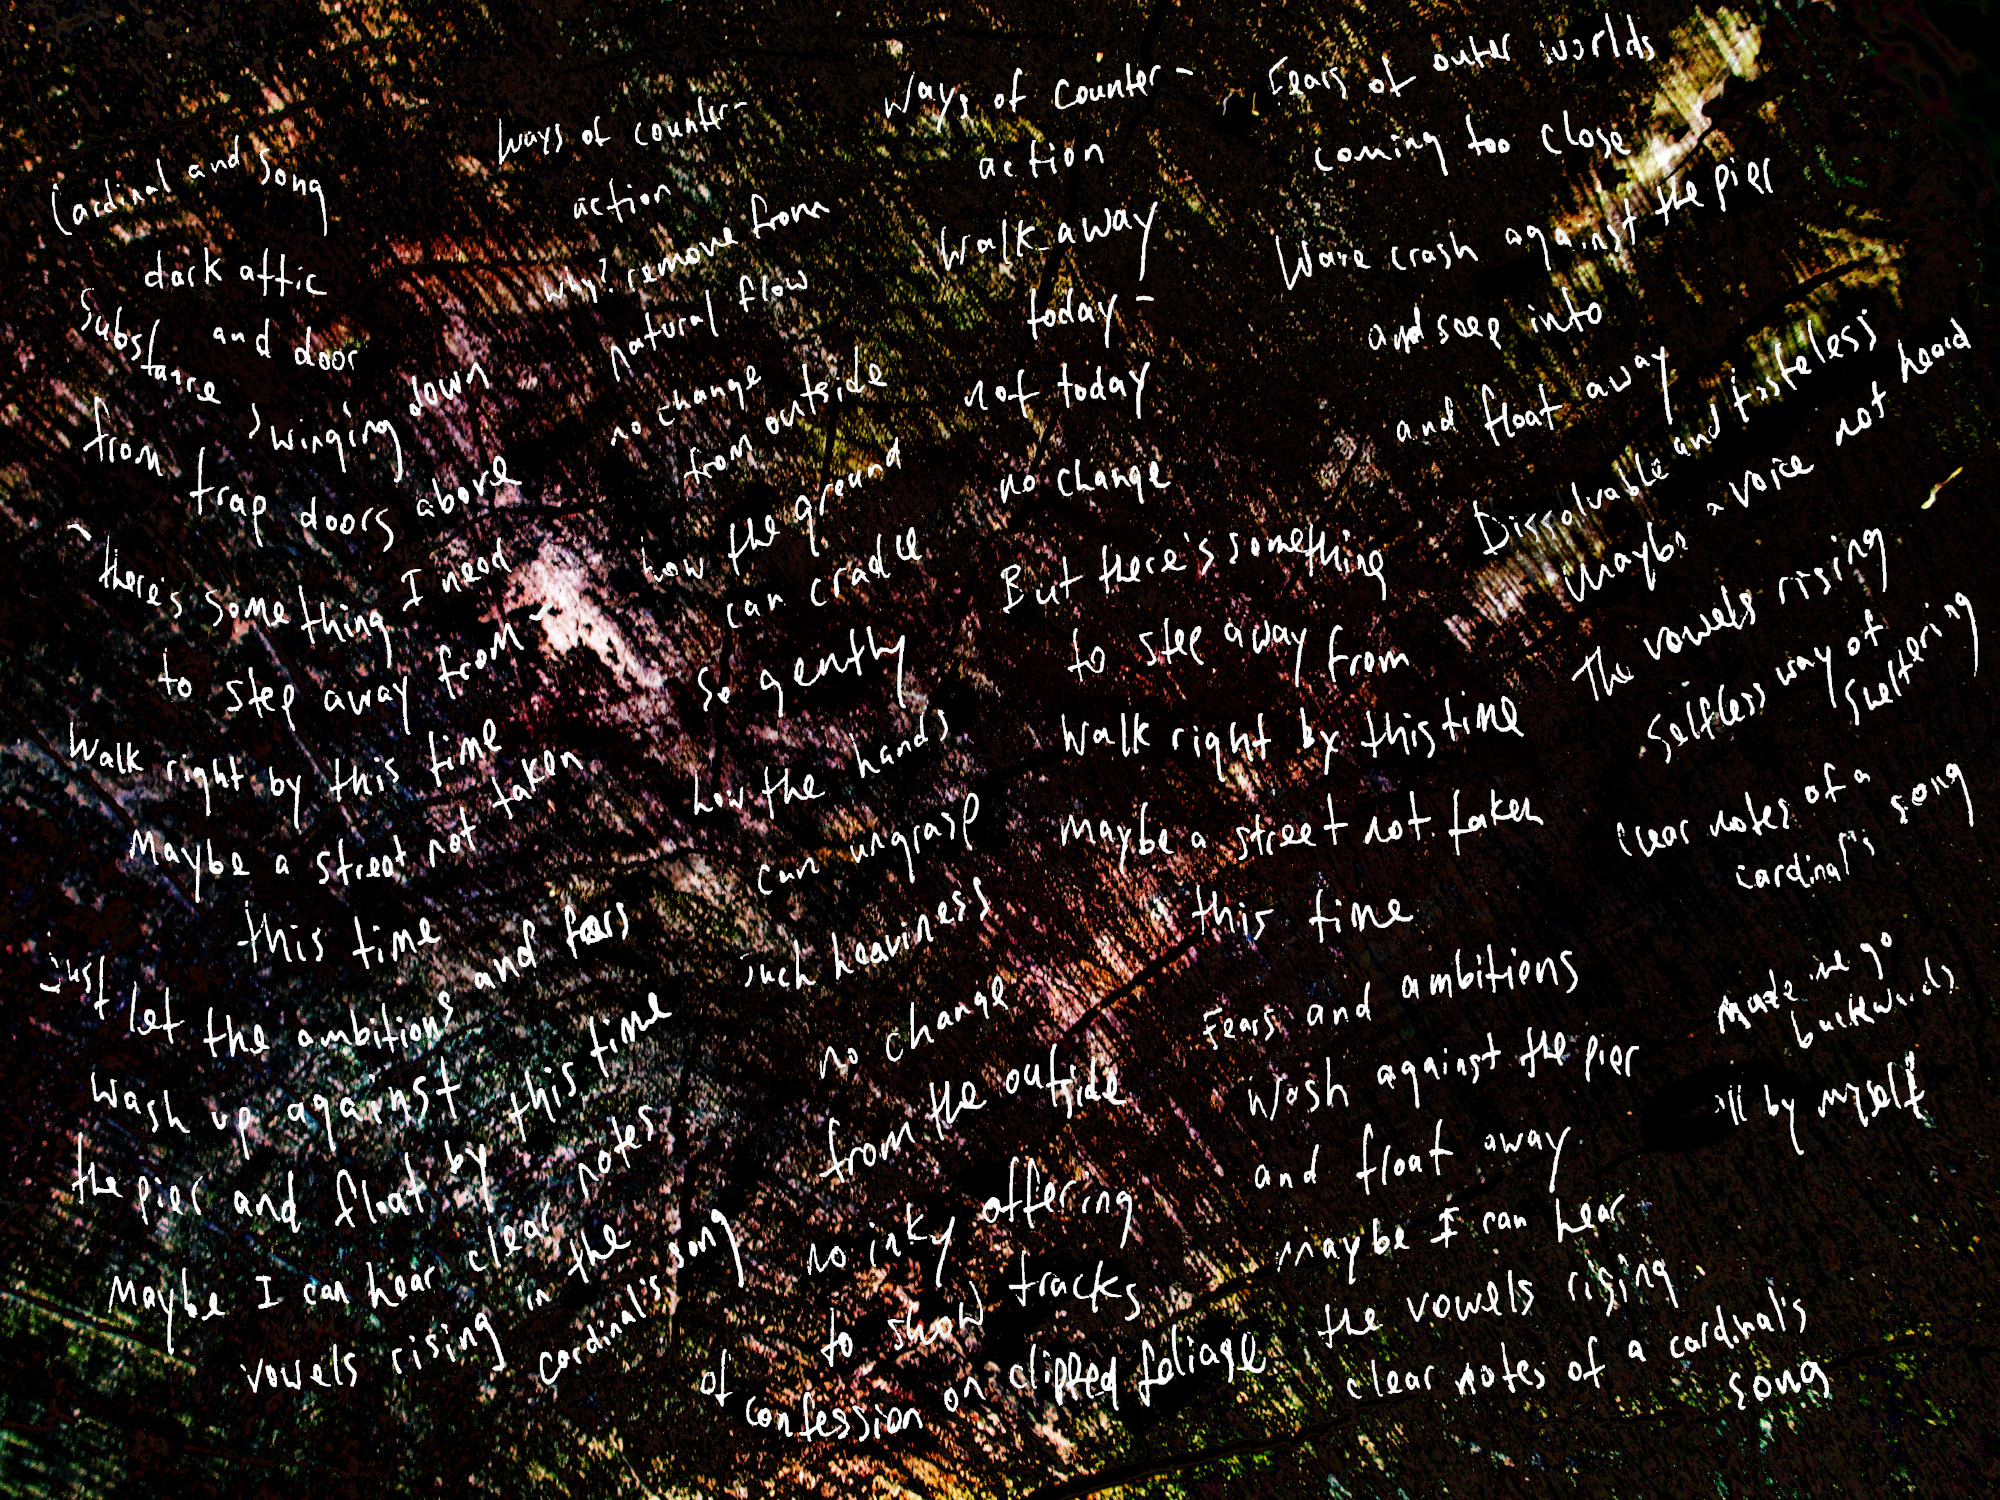 Cardinal and song
dark attic
and door
Substance swinging down
from trap doors above
~ there's something I need
to step away from ~
Walk right by this time
Maybe a street not taken
this time
just let the ambitions and fears
wash up against
the pier and float by this time
Maybe I can hear clear notes
vowels rising in the
cardinal's song
Ways of counter-
action
why? remove from
natural flow
no change
from outside
how the ground
can cradle
so gently
how the hands
can ungrasp
such heaviness
no change
from the outside
no inky offering
to show tracks
of confession on clipped foliage
Ways of counter-
action
Walk away
today -
not today
no change
But there's something
to step away from
Walk right by this time
Maybe a street not taken
this time
Fears and ambitions
Wash against the pier
and float away
maybe I can hear
the vowels rising
clear notes of a cardinal's
song
Fears of outer worlds
coming too close
Wave crash against the pier
and seep into
and float away
Dissolvable and tasteless
Maybe a voice not heard
The vowels rising
Selfless way of
sheltering
clear notes of a
cardinal's song
made me go
backwards
all by myself